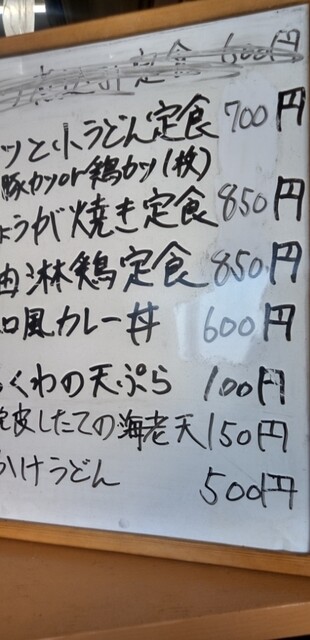 定食 600円
ツと小うどん定食 700円
豚カツor鶏カツ(1枚)
ょうが焼き定食 850円
油淋鶏定食 850円
和風カレー丼 600円
ちくわの天ぷら 100円
皮したての海老天 150円
かけうどん 500円